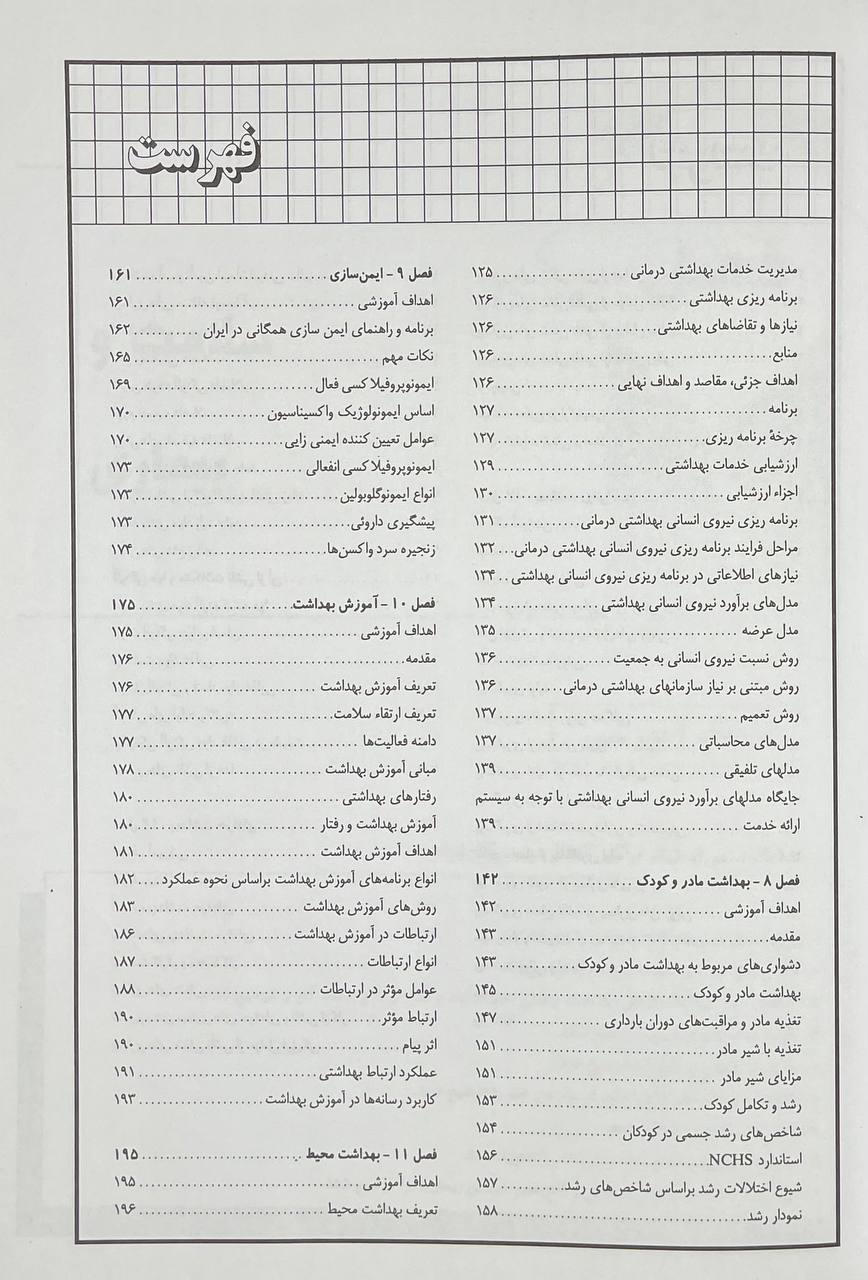 فهرست
مدیریت خدمات بهداشتی درمانی ..................... ۱۲۵
برنامه ریزی بهداشتی ................................ ۱۲۶
نیازها و تقاضاهای بهداشتی ........................... ۱۲۶
منابع ............................................. ۱۲۶
اهداف جزئی، مقاصد و اهداف نهایی .................... ۱۲۶
برنامه ............................................ ۱۲۷
چرخهٔ برنامه ریزی .................................. ۱۲۷
ارزشیابی خدمات بهداشتی ............................. ۱۲۹
اجزاء ارزشیابی ..................................... ۱۳۰
برنامه ریزی نیروی انسانی بهداشتی درمانی ............. ۱۳۱
مراحل فرایند برنامه ریزی نیروی انسانی بهداشتی درمانی ... ۱۳۲
نیازهای اطلاعاتی در برنامه ریزی نیروی انسانی بهداشتی .. ۱۳۴
مدل‌های برآورد نیروی انسانی بهداشتی .................. ۱۳۴
مدل عرضه .......................................... ۱۳۵
روش نسبت نیروی انسانی به جمعیت ..................... ۱۳۶
روش مبتنی بر نیاز سازمانهای بهداشتی درمانی ........... ۱۳۶
روش تعمیم .......................................... ۱۳۷
مدل‌های محاسباتی ................................... ۱۳۷
مدلهای تلفیقی ...................................... ۱۳۹
جایگاه مدلهای برآورد نیروی انسانی بهداشتی با توجه به سیستم
ارائه خدمت ......................................... ۱۳۹
فصل ۸ - بهداشت مادر و کودک ........................ ۱۴۲
اهداف آموزشی ....................................... ۱۴۲
مقدمه .............................................. ۱۴۳
دشواری‌های مربوط به بهداشت مادر و کودک ............. ۱۴۳
بهداشت مادر و کودک ................................. ۱۴۵
تغذیه مادر و مراقبت‌های دوران بارداری ................ ۱۴۷
تغذیه با شیر مادر ................................... ۱۵۱
مزایای شیر مادر .................................... ۱۵۱
رشد و تکامل کودک ................................... ۱۵۳
شاخص‌های رشد جسمی در کودکان ...................... ۱۵۴
استاندارد NCHS .................................... ۱۵۶
شیوع اختلالات رشد براساس شاخص‌های رشد ............. ۱۵۷
نمودار رشد ......................................... ۱۵۸
فصل ۹ - ایمن‌سازی .................................. ۱۶۱
اهداف آموزشی ....................................... ۱۶۱
برنامه و راهنمای ایمن سازی همگانی در ایران .......... ۱۶۲
نکات مهم ........................................... ۱۶۵
ایمونوپروفیلاکسی فعال ............................... ۱۶۹
اساس ایمونولوژیک واکسیناسیون ....................... ۱۷۰
عوامل تعیین کننده ایمنی زایی ........................ ۱۷۰
ایمونوپروفیلاکسی انفعالی ............................ ۱۷۳
انواع ایمونوگلوبولین ................................ ۱۷۳
پیشگیری داروئی ..................................... ۱۷۳
زنجیره سرد واکسن‌ها ................................ ۱۷۴
فصل ۱۰ - آموزش بهداشت ............................. ۱۷۵
اهداف آموزشی ....................................... ۱۷۵
مقدمه .............................................. ۱۷۶
تعریف آموزش بهداشت ................................. ۱۷۶
تعریف ارتقاء سلامت .................................. ۱۷۷
دامنه فعالیت‌ها ..................................... ۱۷۷
مبانی آموزش بهداشت ................................. ۱۷۸
رفتارهای بهداشتی ................................... ۱۸۰
آموزش بهداشت و رفتار ............................... ۱۸۰
اهداف آموزش بهداشت ................................. ۱۸۱
انواع برنامه‌های آموزش بهداشت براساس نحوه عملکرد .... ۱۸۲
روش‌های آموزش بهداشت ............................... ۱۸۳
ارتباطات در آموزش بهداشت ........................... ۱۸۶
انواع ارتباطات ...................................... ۱۸۷
عوامل مؤثر در ارتباطات .............................. ۱۸۸
ارتباط مؤثر ........................................ ۱۹۰
اثر پیام ........................................... ۱۹۰
عملکرد ارتباط بهداشتی .............................. ۱۹۱
کاربرد رسانه‌ها در آموزش بهداشت ..................... ۱۹۳
فصل ۱۱ - بهداشت محیط .............................. ۱۹۵
اهداف آموزشی ....................................... ۱۹۵
تعریف بهداشت محیط ................................. ۱۹۶